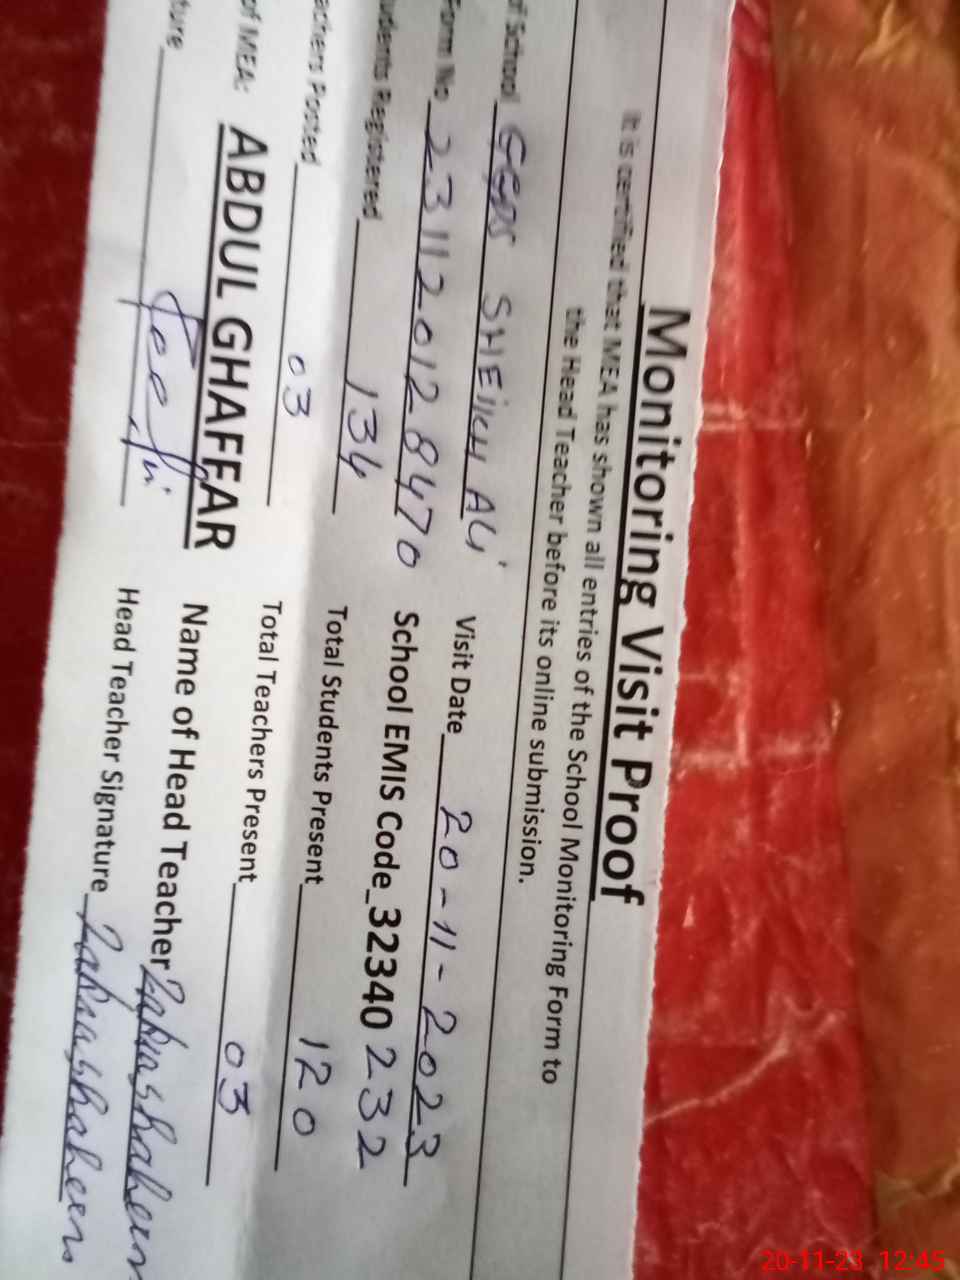 Monitoring Visit Proof
It is certified that MEA has shown all entries of the School Monitoring Form to
the Head Teacher before its online submission.
of School SHEIKH ALi Visit Date 20-11-2023
Form No 231120128470 School EMIS Code 32340232
udents Registered 134 Total Students Present 120
achers Posted 03 Total Teachers Present 03
of MEA: ABDUL GHAFFAR Name of Head Teacher
ture Head Teacher Signature
20-11-23 12:45